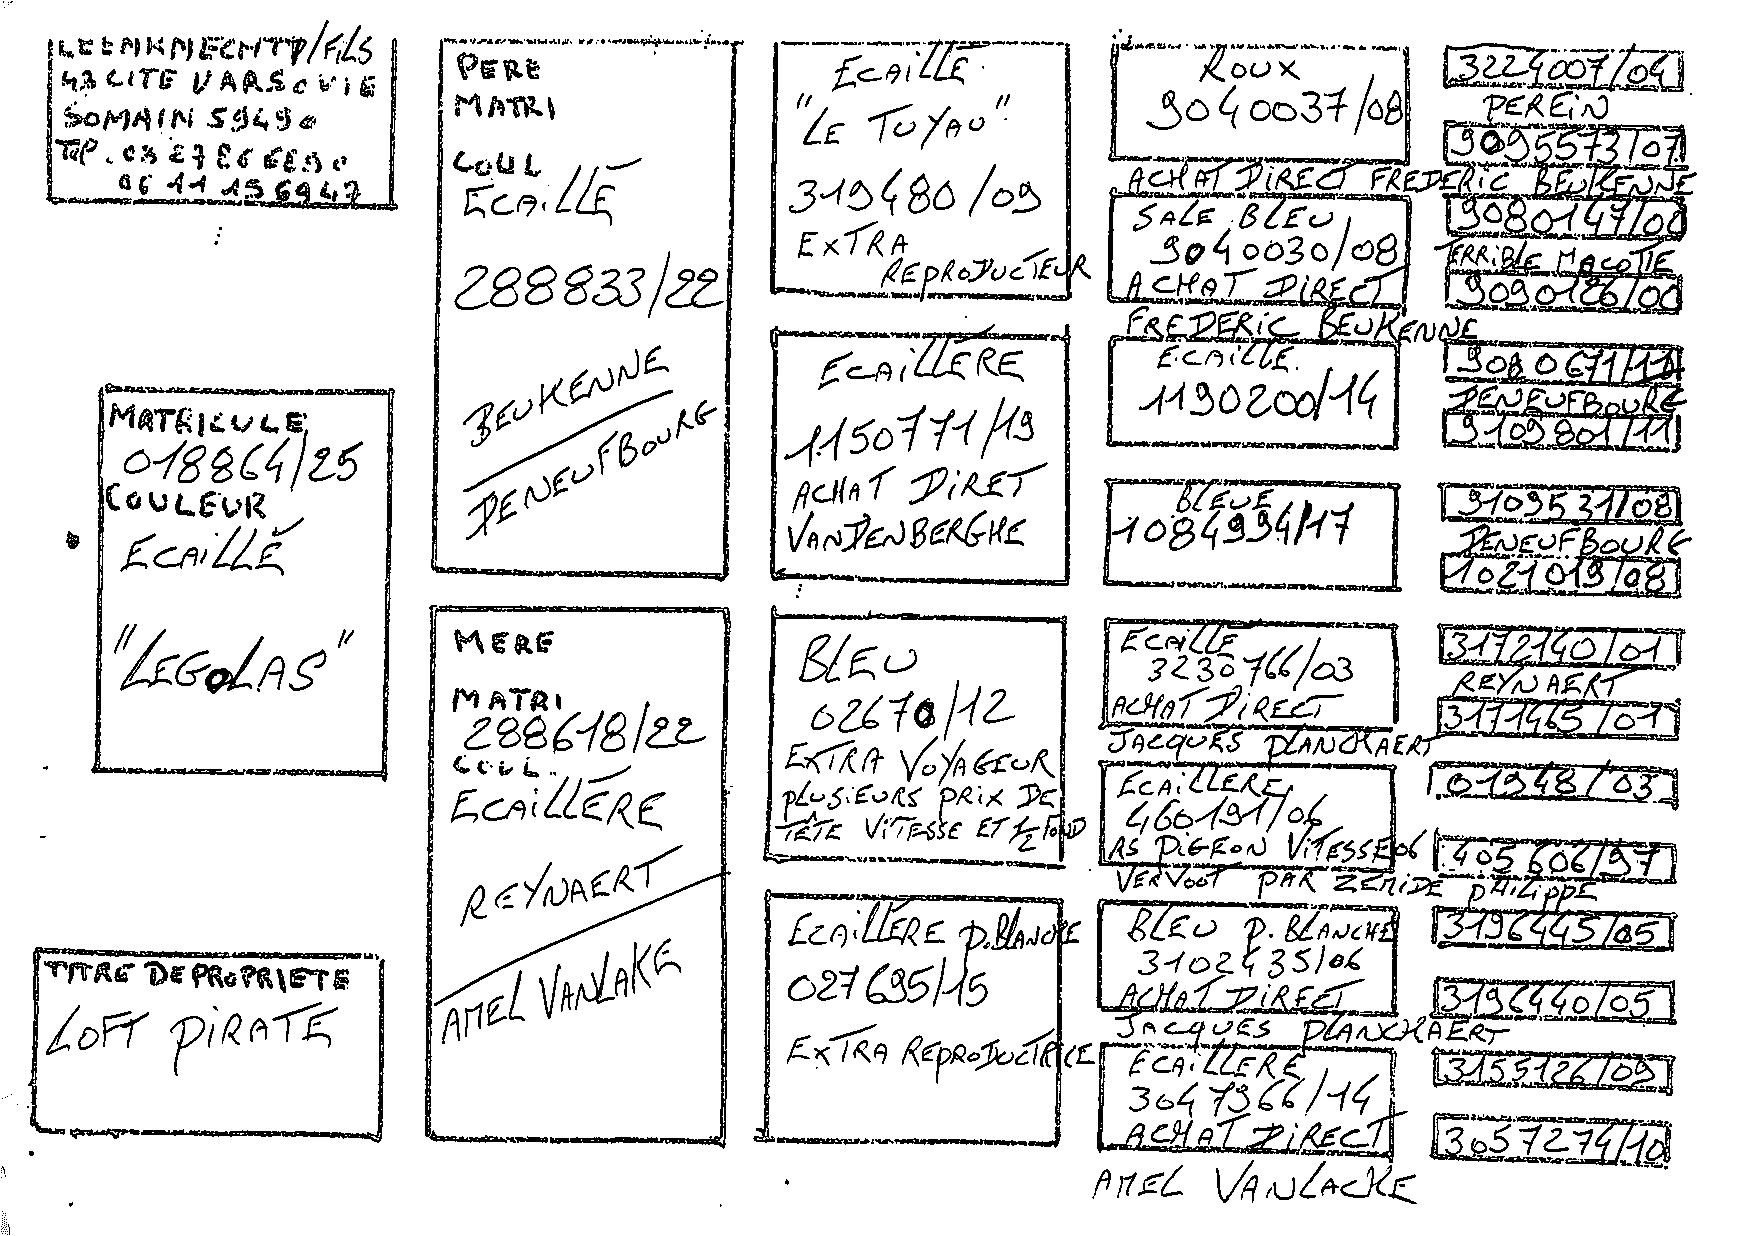 43 CITE VARSOVIE
SOMAIN 59490
06 11 15 69 47
MATRICULE
018864/25
COULEUR
ECAILLÉ
"LEGOLAS"
TITRE DE PROPRIETE
LOFT PIRATE
PERE
MATRI
COUL
ECAILLÉ
288833/22
BEUKENNE
DENEUFBOURG
MERE
MATRI
288618/22
COUL.
ECAILLÈRE
REYNAERT
AMEL VANLAKE
ECAILLÉ
"LE TUYAU"
319480/09
EXTRA
REPRODUCTEUR
ECAILLÈRE
1150771/19
ACHAT DIRET
VANDENBERGHE
BLEU
02670/12
EXTRA VOYAGEUR
PLUSIEURS PRIX DE
TÊTE VITESSE ET 1/2 FOND
ECAILLÈRE P.BLANCHE
027695/15
EXTRA REPRODUCTRICE
ROUX
9040037/08
ACHAT DIRECT FREDERIC BEUKENNE
SALE BLEU
9040030/08
ACHAT DIRECT
FREDERIC BEUKENNE
ECAILLE
1190200/14
BLEUE
1084994/17
ECAILLÉ
3230766/03
ACHAT DIRECT
JACQUES PLANCKAERT
ECAILLERE
460191/06
AS PIGEON VITESSE 06
VERVOOT PAR ZEMIDE PHILIPPE
BLEU P.BLANCHE
3102435/06
ACHAT DIRECT
JACQUES PLANCKAERT
ECAILLERE
3047966/14
ACHAT DIRECT
AMEL VANLACKE
3224007/04
PEREIN
9095573/07
9080147/00
TERRIBLE MACOTTE
9090126/00
9080671/11
DENEUFBOURG
9109801/11
9109531/08
DENEUFBOURG
1021019/08
3172140/01
REYNAERT
3171465/01
01948/03
405606/97
3196445/05
3196440/05
3155126/09
3057274/10